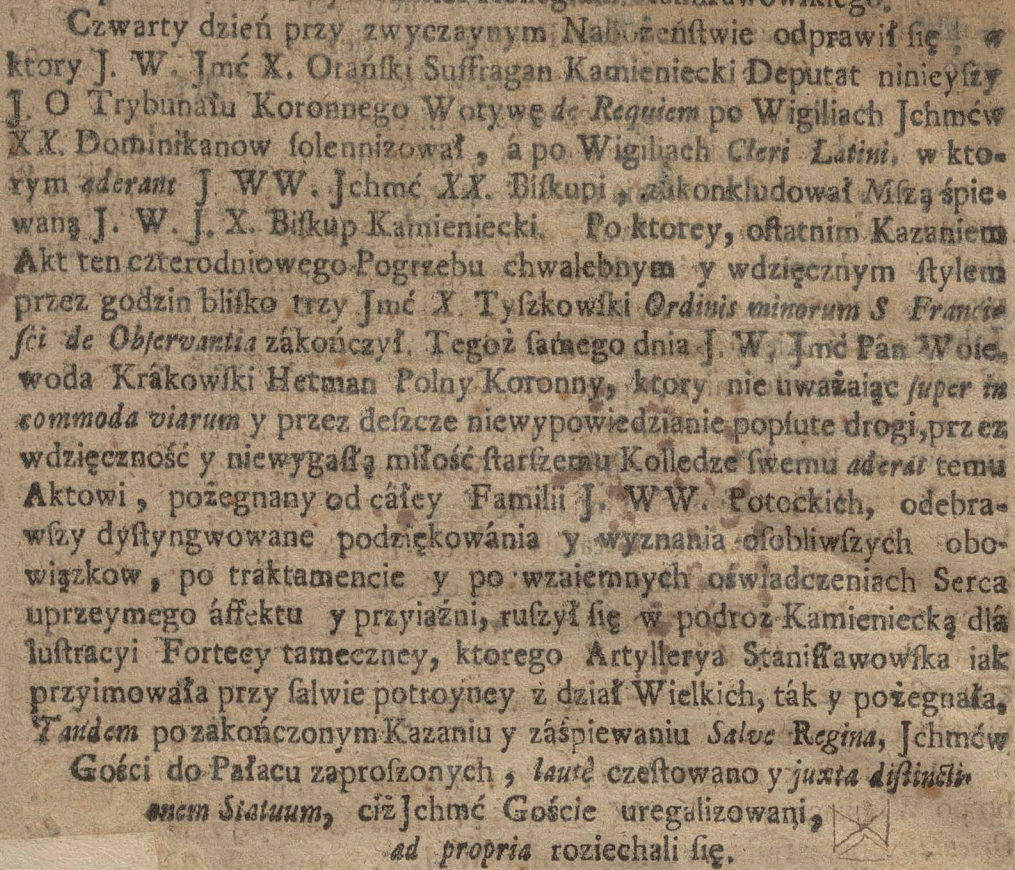 Czwarty dzień przy zwyczaynym Nabożeńſtwie odprawił ſię, w
ktory J. W. Jmć X. Orańſki Suffragan Kamieniecki Deputat ninieyſzy
J. O Trybunału Koronnego Wotywę de Requiem po Wigiliach Jchmćw
XX. Dominikanow ſolennizował, á po Wigiliach Cleri Latini, w kto-
rym aderant J WW. Jchmć XX. Biſkupi, zákonkludował Mſzą śpie-
waną J. W. J. X. Biſkup Kamieniecki. Po ktorey, oſtatnim Kazaniem
Akt ten czterodniowego Pogrzebu chwalebnym y wdzięcznym ſtylem
przez godzin bliſko trzy Jmć X. Tyſzkowſki Ordinis minorum S Franci-
ſci de Obſervantia zákończył. Tegoż ſamego dnia J. W. Jmć Pán Woie-
woda Krákowſki Hetman Polny Koronny, ktory nie uważaiąc ſuper in
commoda viarum y przez deſzcze niewypowiedzianie popſute drogi, przez
wdzięczność y niewygaſłą miłość ſtarſzemu Kolledze ſwemu aderat temu
Aktowi, pożegnany od cáłey Familii J. WW. Potockich, odebra-
wſzy dyſtyngwowane podziękowánia y wyznania oſobliwſzych obo-
wiązkow, po traktamencie y po wzaiemnych oświadczeniach Serca
uprzeymego áffektu y przyiaźni, ruſzył ſię w podroż Kamieniecką dlá
luſtracyi Fortecy tameczney, ktorego Artyllerya Staniſławowſka iak
przyimowała przy ſalwie potroyney z dział Wielkich, ták y pożegnała,
Tandem po zakończonym Kazaniu y záśpiewaniu Salve Regina, Jchmćw
Gości do Pałacu zaproſzonych, lautè czeſtowano y juxta diſtincti-
onem Statuum, ciż Jchmć Goście uregalizowani,
ad propria roziechali ſię.